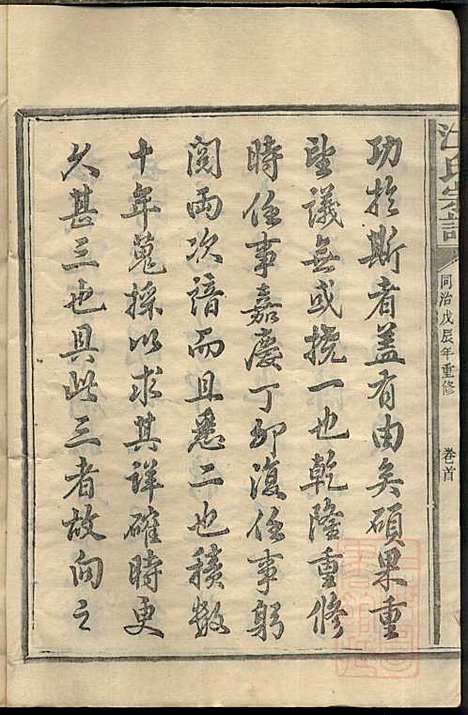 江氏宗譜
同治戊辰年重修
卷首
功於斯者蓋有由矣碩果重
望議無或撓一也乾隆重修
時任事嘉慶丁卯復任事躬
閱兩次諳而且悉二也積數
十年蒐採以求其詳確時更
久甚三也具此三者故向之